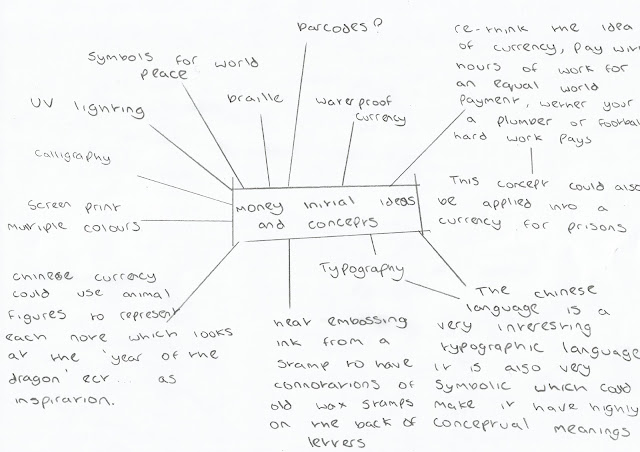 barcodes?
Symbols for world
peace
UV lighting
braille
waterproof
currency
re-think the idea
of currency, Pay wit
hours of work for
an equal world
payment, wether your
a plumber or footbal
hard work pays
This concept could also
be applied into a
currency for prisons
Calligraphy
Screen print
Multiple colours
Money initial ideas
and concepts
Typography
Chinese currency
could use animal
figures to represent
each note which looks
at the 'year of the
dragon' ect... as
inspiration.
heat embossing
ink from a
stamp to have
connotations of
old wax stamps
on the back of
letters
The chinese
language is a
very interesting
typographic language
it is also very
symbolic which could
make it have highly
conceptual meanings